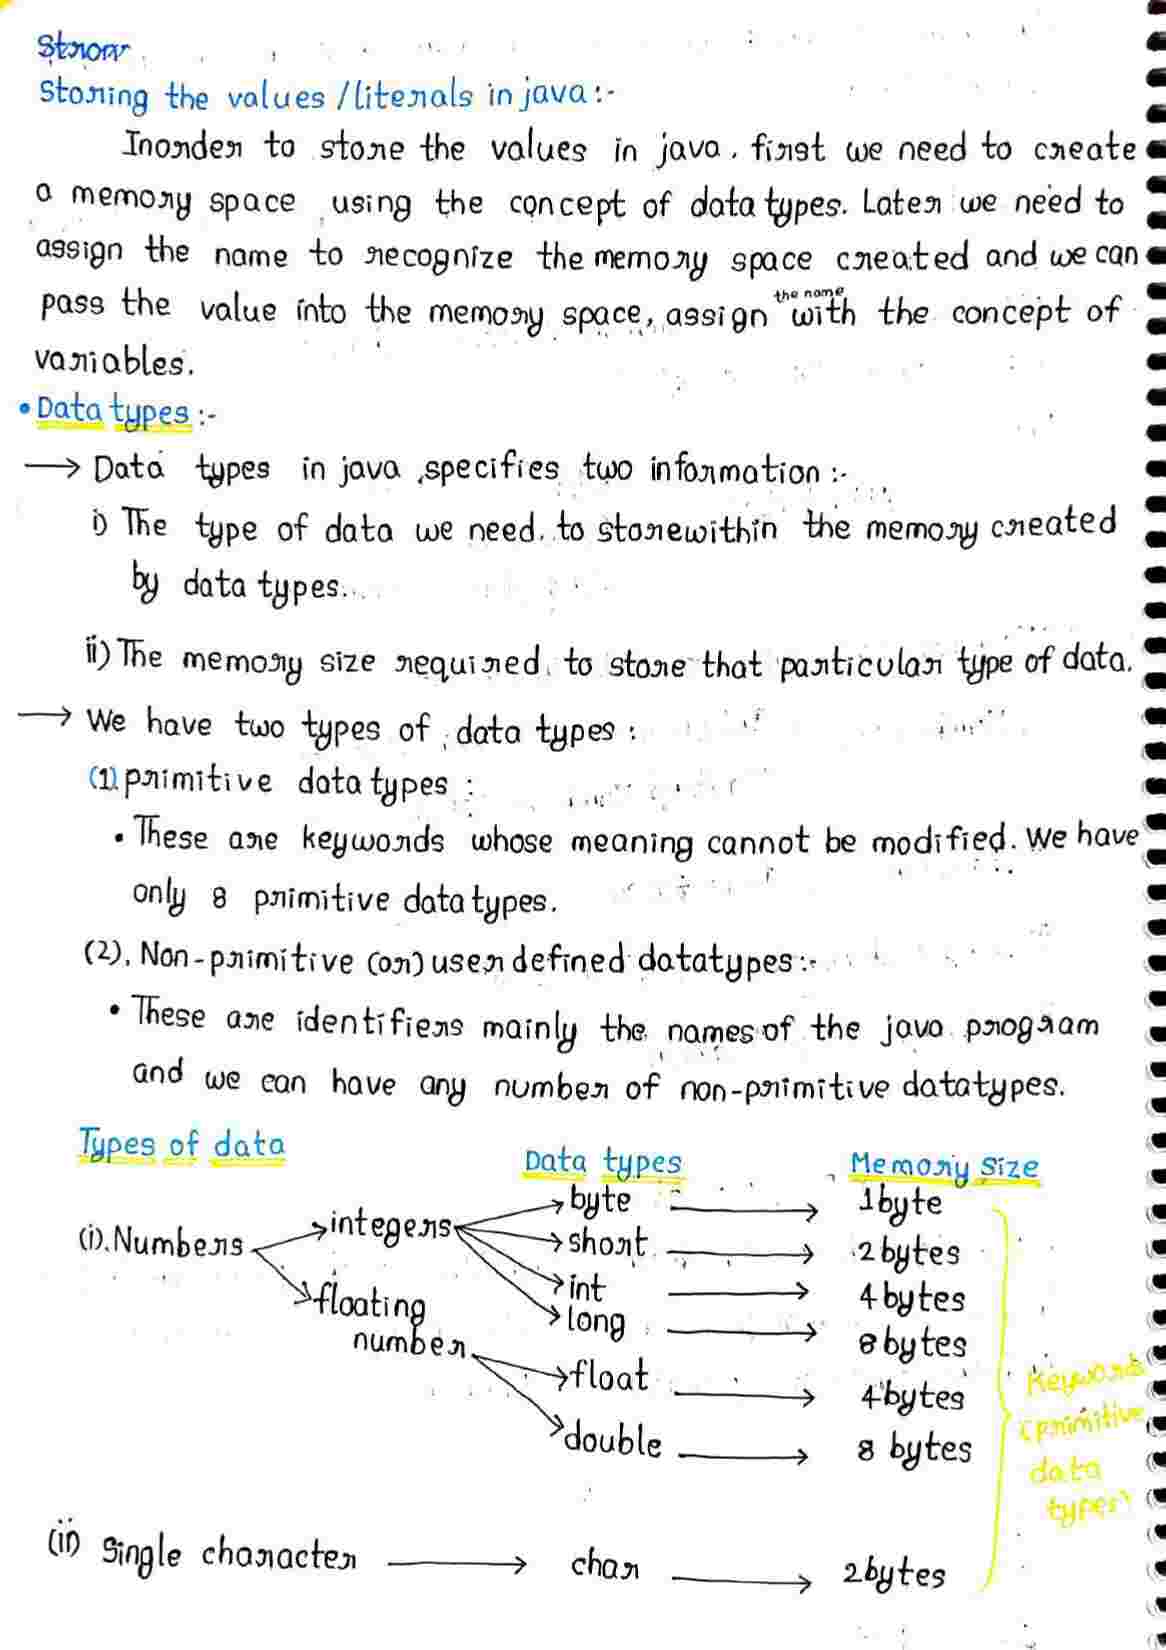 Storing the values /literals in java :-
Inorder to store the values in java, first we need to create
a memory space using the concept of data types. Later we need to
assign the name to recognize the memory space created and we can
the name
pass the value into the memory space, assign with the concept of
variables.
• Data types :-
→ Data types in java specifies two information :-
i) The type of data we need to storewithin the memory created
by data types.
ii) The memory size required to store that particular type of data.
→ We have two types of data types :
(1) primitive data types :
• These are keywords whose meaning cannot be modified. We have
only 8 primitive data types.
(2). Non-primitive (or) user defined datatypes :-
• These are identifiers mainly the names of the java program
and we can have any number of non-primitive datatypes.
Types of data Data types Memory size
byte → 1byte
(i). Numbers → integers → short → 2bytes
int → 4bytes
→ floating long → 8bytes
number → float → 4bytes
double → 8 bytes
Keywords
(primitive
data
types)
(ii) Single character → char → 2bytes